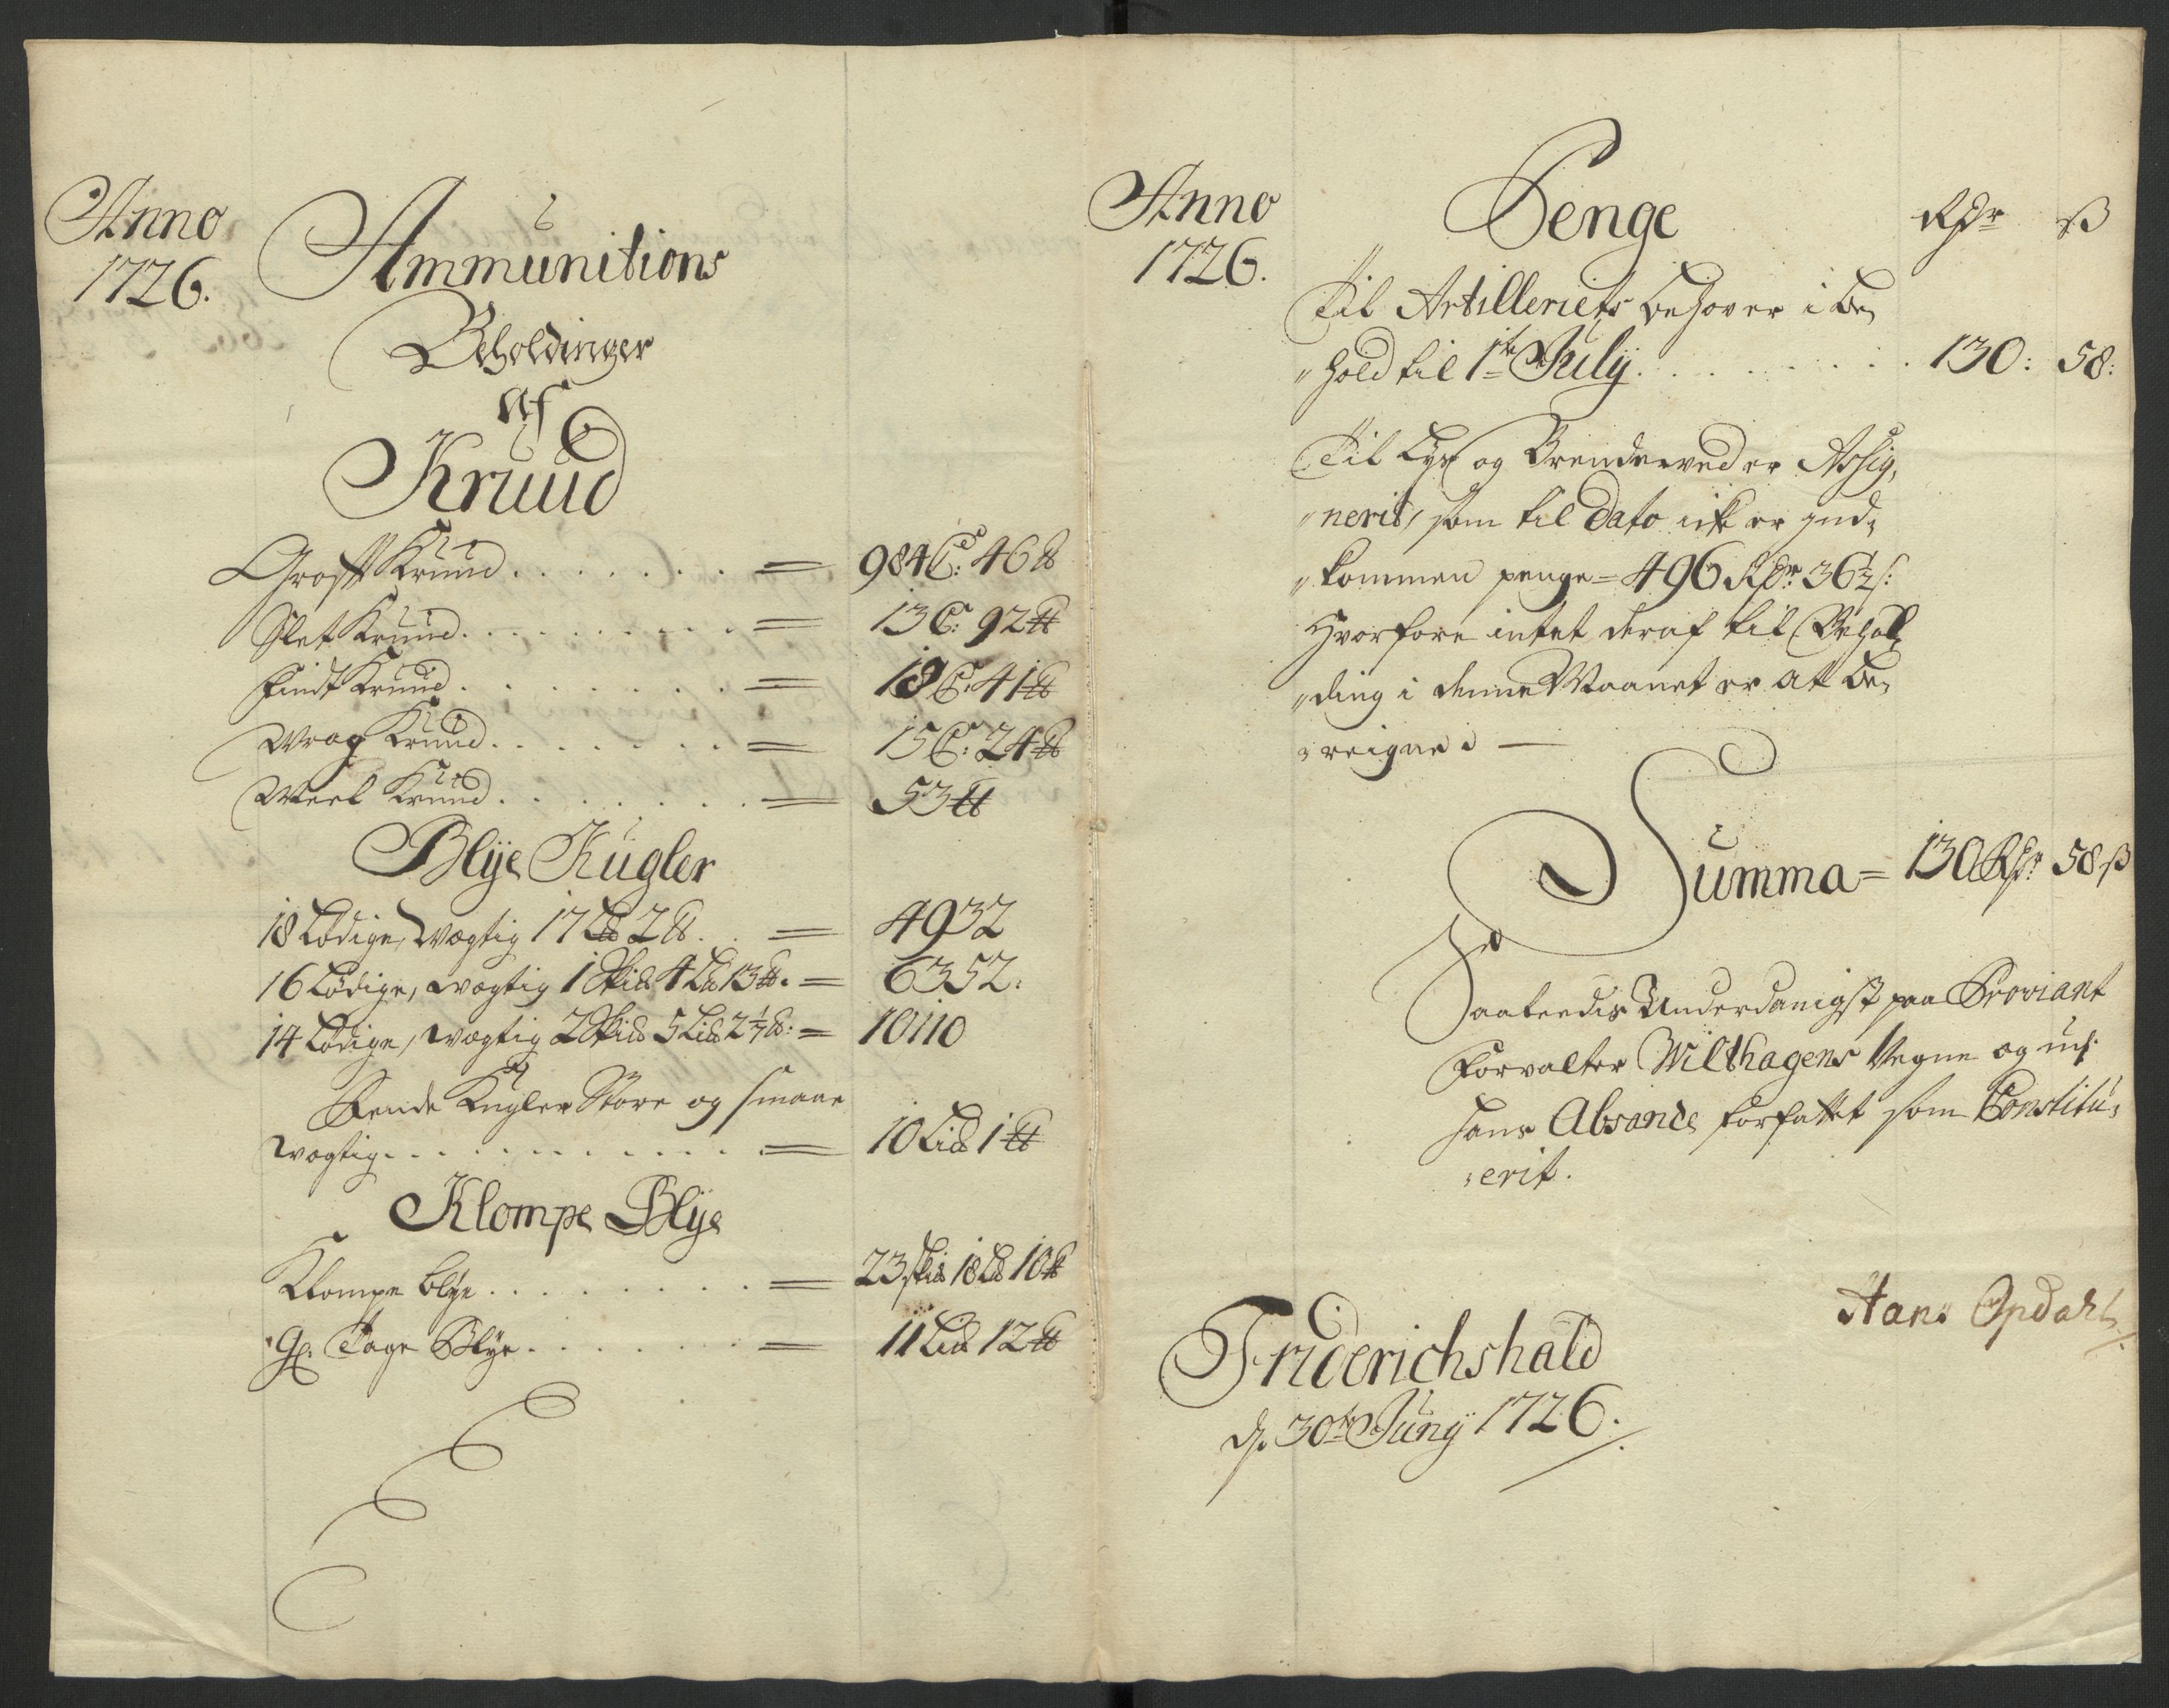 Anno
1726.
Ammunitions
Beholdinger
Af
Kruud
Groft Kruud = 984 C: 46 ℔
Slet Kruud = 13 C: 92 ℔
Findt Kruud = 18 C: 41 ℔
Wrag Kruud = 15 C: 24 ℔
Meel Kruud = 53 ℔
Blÿe Kugler
18 Lödige, Wogtig 17 L℔ 2 ℔ = 4932
16 Lödige, wogtig 1 Sk℔ 4 L℔ 13 ℔ = 6352:
14 Lödige, wogtig 2 Sk℔ 5 Li℔ 2½ ℔: = 10110
Kugler Store og smaae
wogtig = 10 Li℔ 1 ℔
Klompe Blÿe
Klompe blÿe = 23 Sk℔ 18 L℔ 10 ℔
Gl. Tage Blÿe = 11 Li℔ 12 ℔
Anno
1726.
Penge Rdr ß
Til Artilleriets behover i be„
„hold til 1te Julÿ 130: 58:
Til Lys og Brendeweder Assig„
„nerit, som til Dato ick er ind„
„kommen penge = 496 Rdr 36½ ß:
Hvorfore intet deraf til Behol„
„ding i denne Maanet er at be„
„reigne
Summa = 130 Rdr 58 ß
Saaledis Underdanigst paa Proviant
Forvalter Wilthagens Vegne og udj
hans Absance forfattet som Constitu„
„erit.
Friderichshald
d. 30te Junÿ 1726.
Hans Opdahl